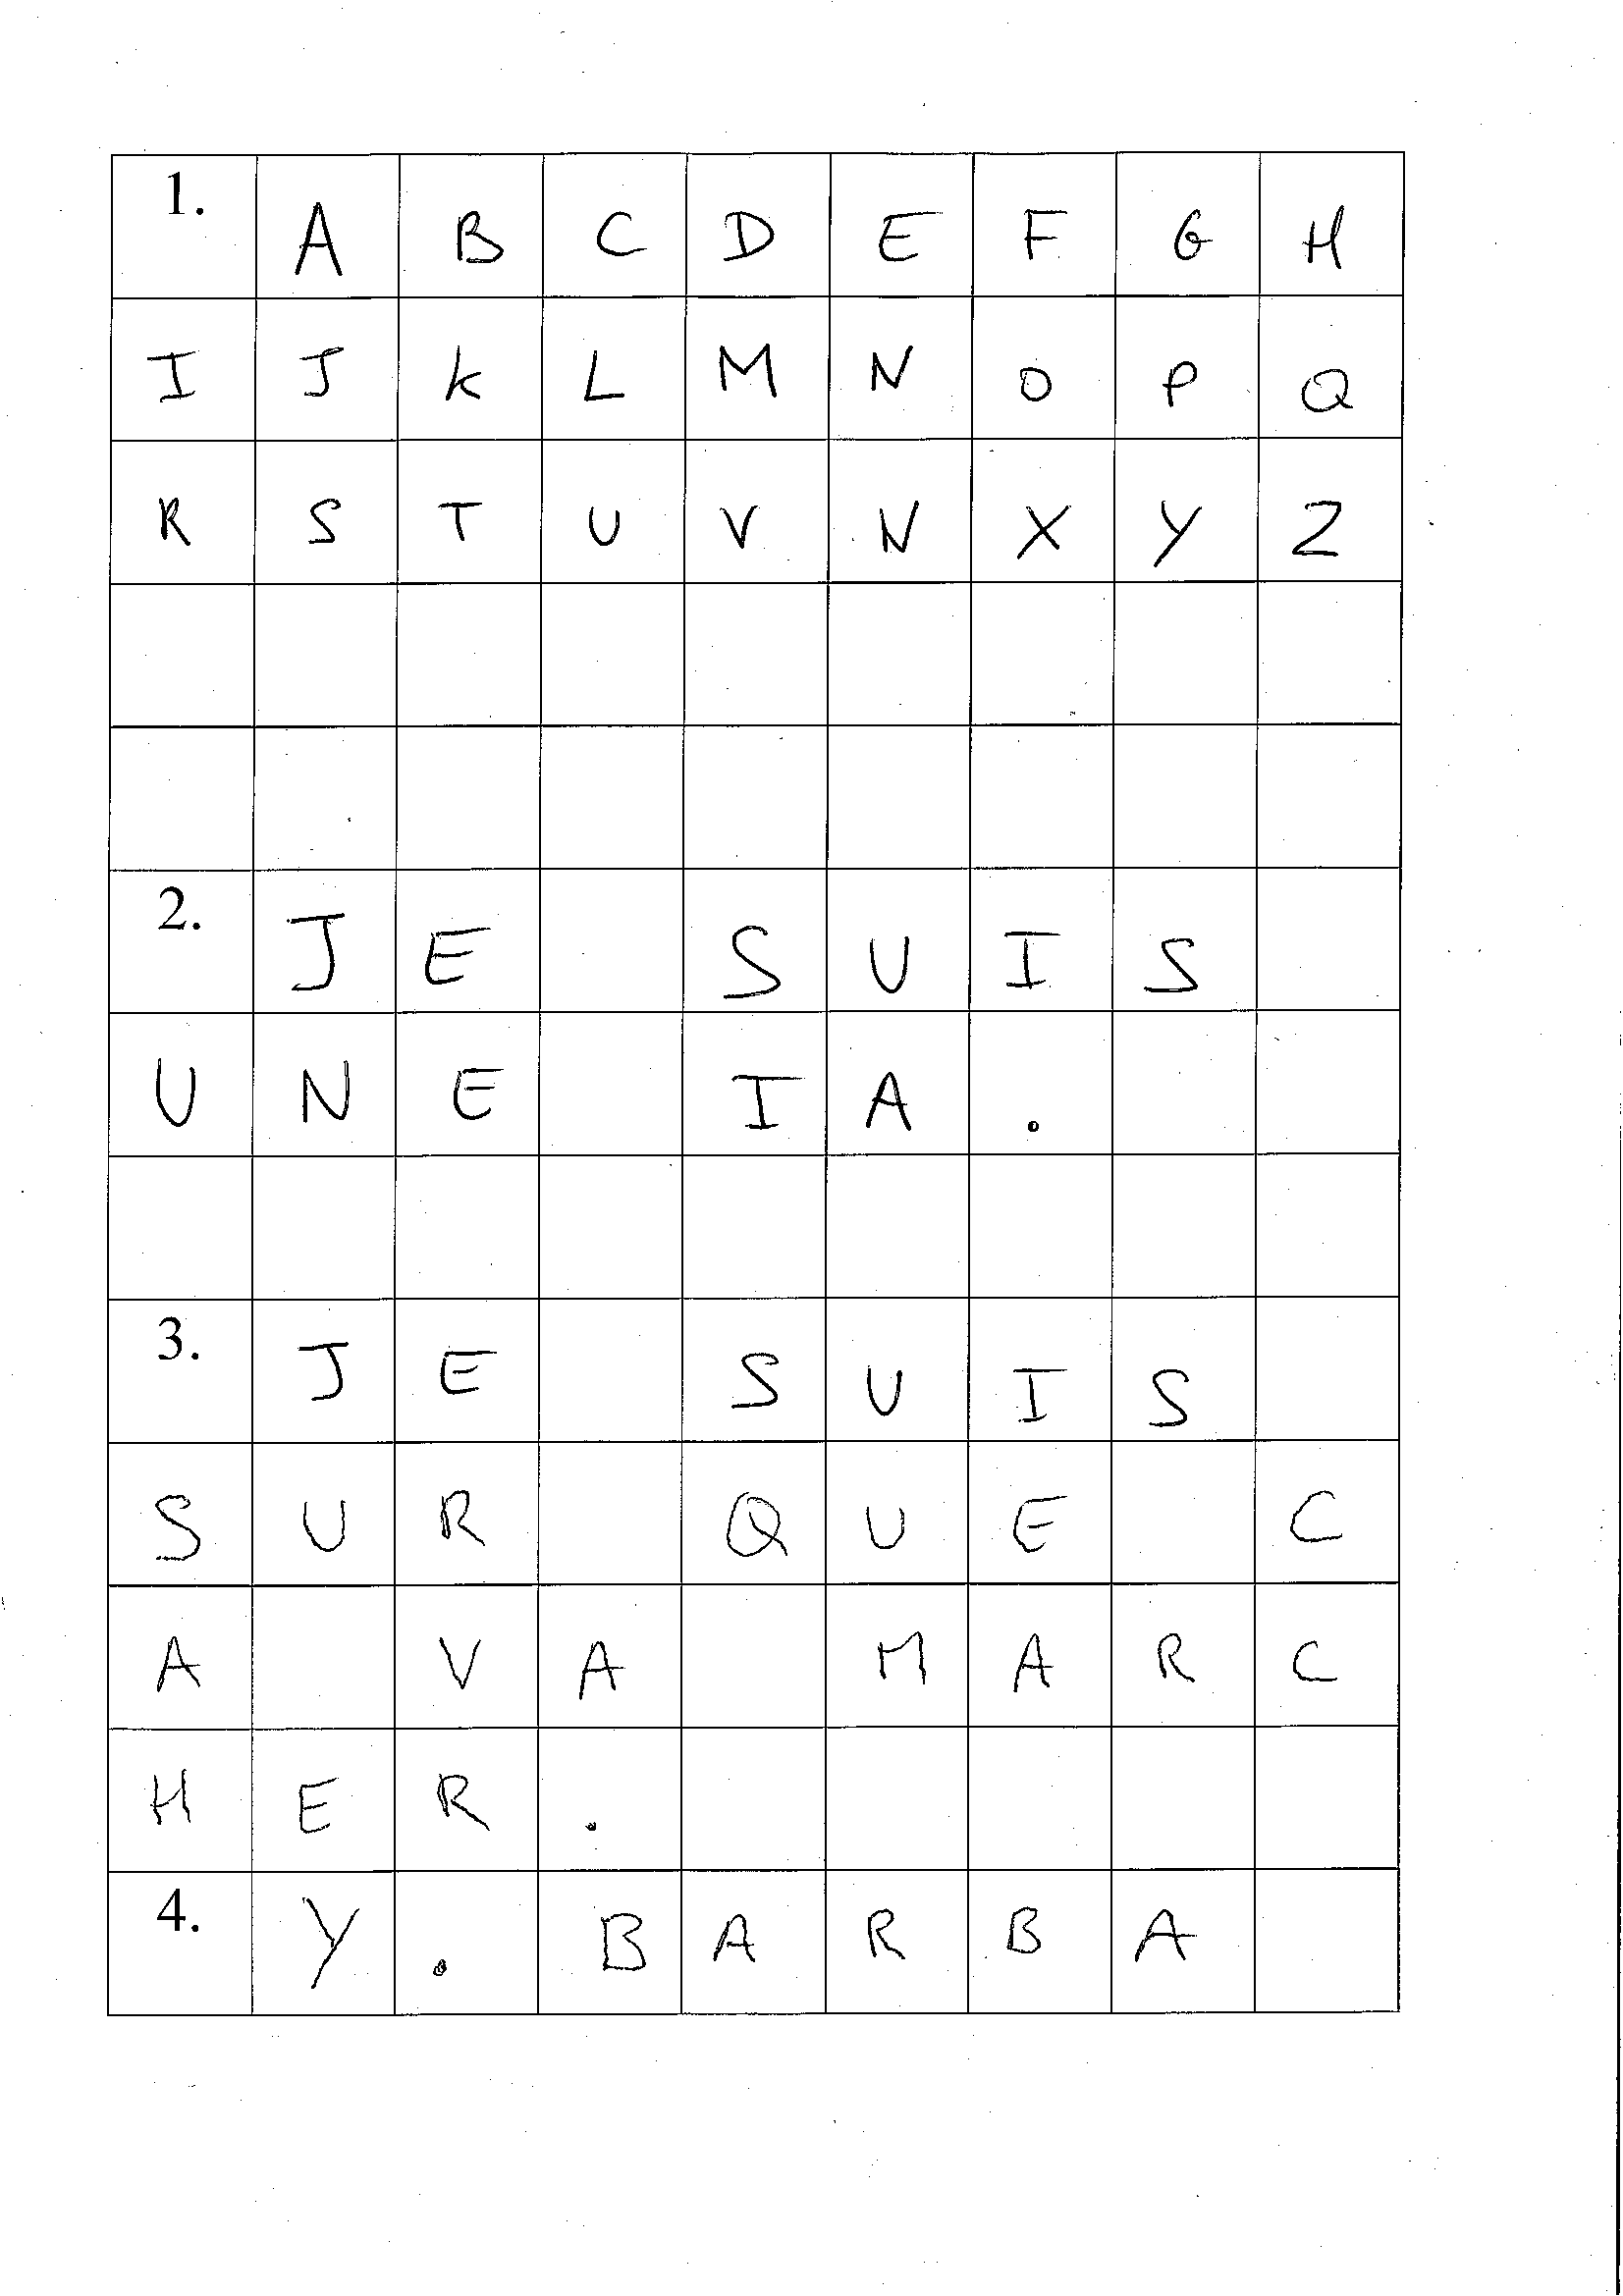 1. A B C D E F G H
I J K L M N O P Q
R S T U V N X Y Z
2. JE SUIS
UNE IA.
3. JE SUIS
SUR QUE C
A VA MARC
HER.
4. Y. BARBA